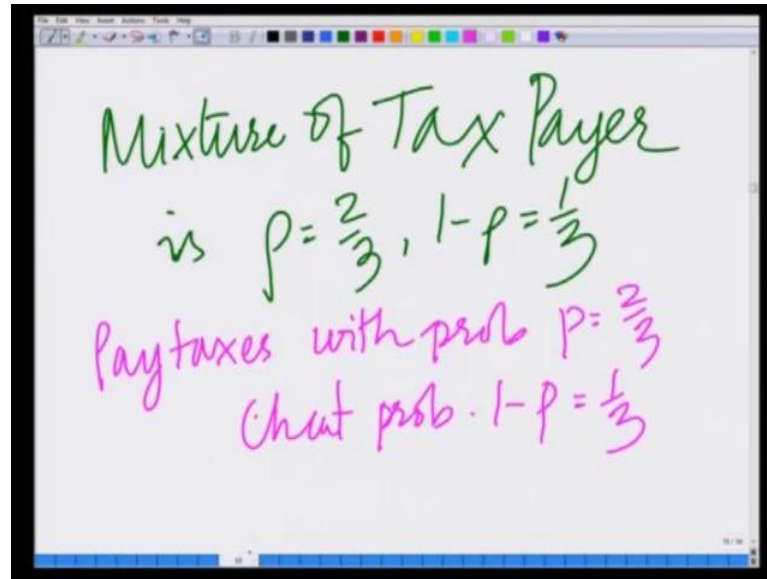 File Edit View Insert Actions Tools Help
Mixture of Tax Payer
is p = 2/3, 1-p = 1/3
Pay taxes with prob p = 2/3
Cheat prob. 1-p = 1/3